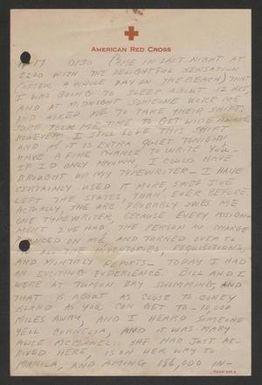 AMERICAN RED CROSS
0130 (CAME IN LAST NIGHT AT
2200 WITH THE DELIGHTFUL SENSATION
(AFTER A WHOLE DAY ON THE BEACH) THAT
I WAS GOING TO SLEEP ABOUT 12 HRS,
AND AT MIDNIGHT SOMEONE WOKE ME
AND ASKED ME TO TAKE THEIR SHIFT.
TOOK ME TO GET WIDE AWAKE
HOWEVER I STILL LOVE THIS SHIFT
AND AS IT IS EXTRA QUIET TONIGHT
HAVE A FINE CHANCE TO WRITE YOU.
IF I'D ONLY KNOWN, I COULD HAVE
BROUGHT UP MY TYPEWRITER - I HAVE
CERTAINLY USED IT MORE SINCE I'VE
LEFT THE STATES THAN EVER BEFORE.
ACTUALLY THE ARC PROBABLY OWES ME
ONE TYPEWRITER, BECAUSE EVERY ASSIGN-
MENT I'VE HAD THE PERSON IN CHARGE
POUNCED ON ME AND TURNED OVER TO
ALL THE INVENTORIES, REQUISITIONS,
AND MONTHLY REPORTS - TODAY I HAD
AN EXCITING EXPERIENCE. BILL AND I
WERE AT TUMON BAY SWIMMING, AND
THAT IS ABOUT AS CLOSE TO CONEY
ISLAND AS YOU CAN GET TO - 10,000
MILES AWAY, AND I HEARD SOMEONE
YELL AND IT WAS MARY
ALICE SHE HAD JUST AR-
RIVED HERE, IS ON HER WAY TO
MANILA, AND AMONG 186,000 IN-